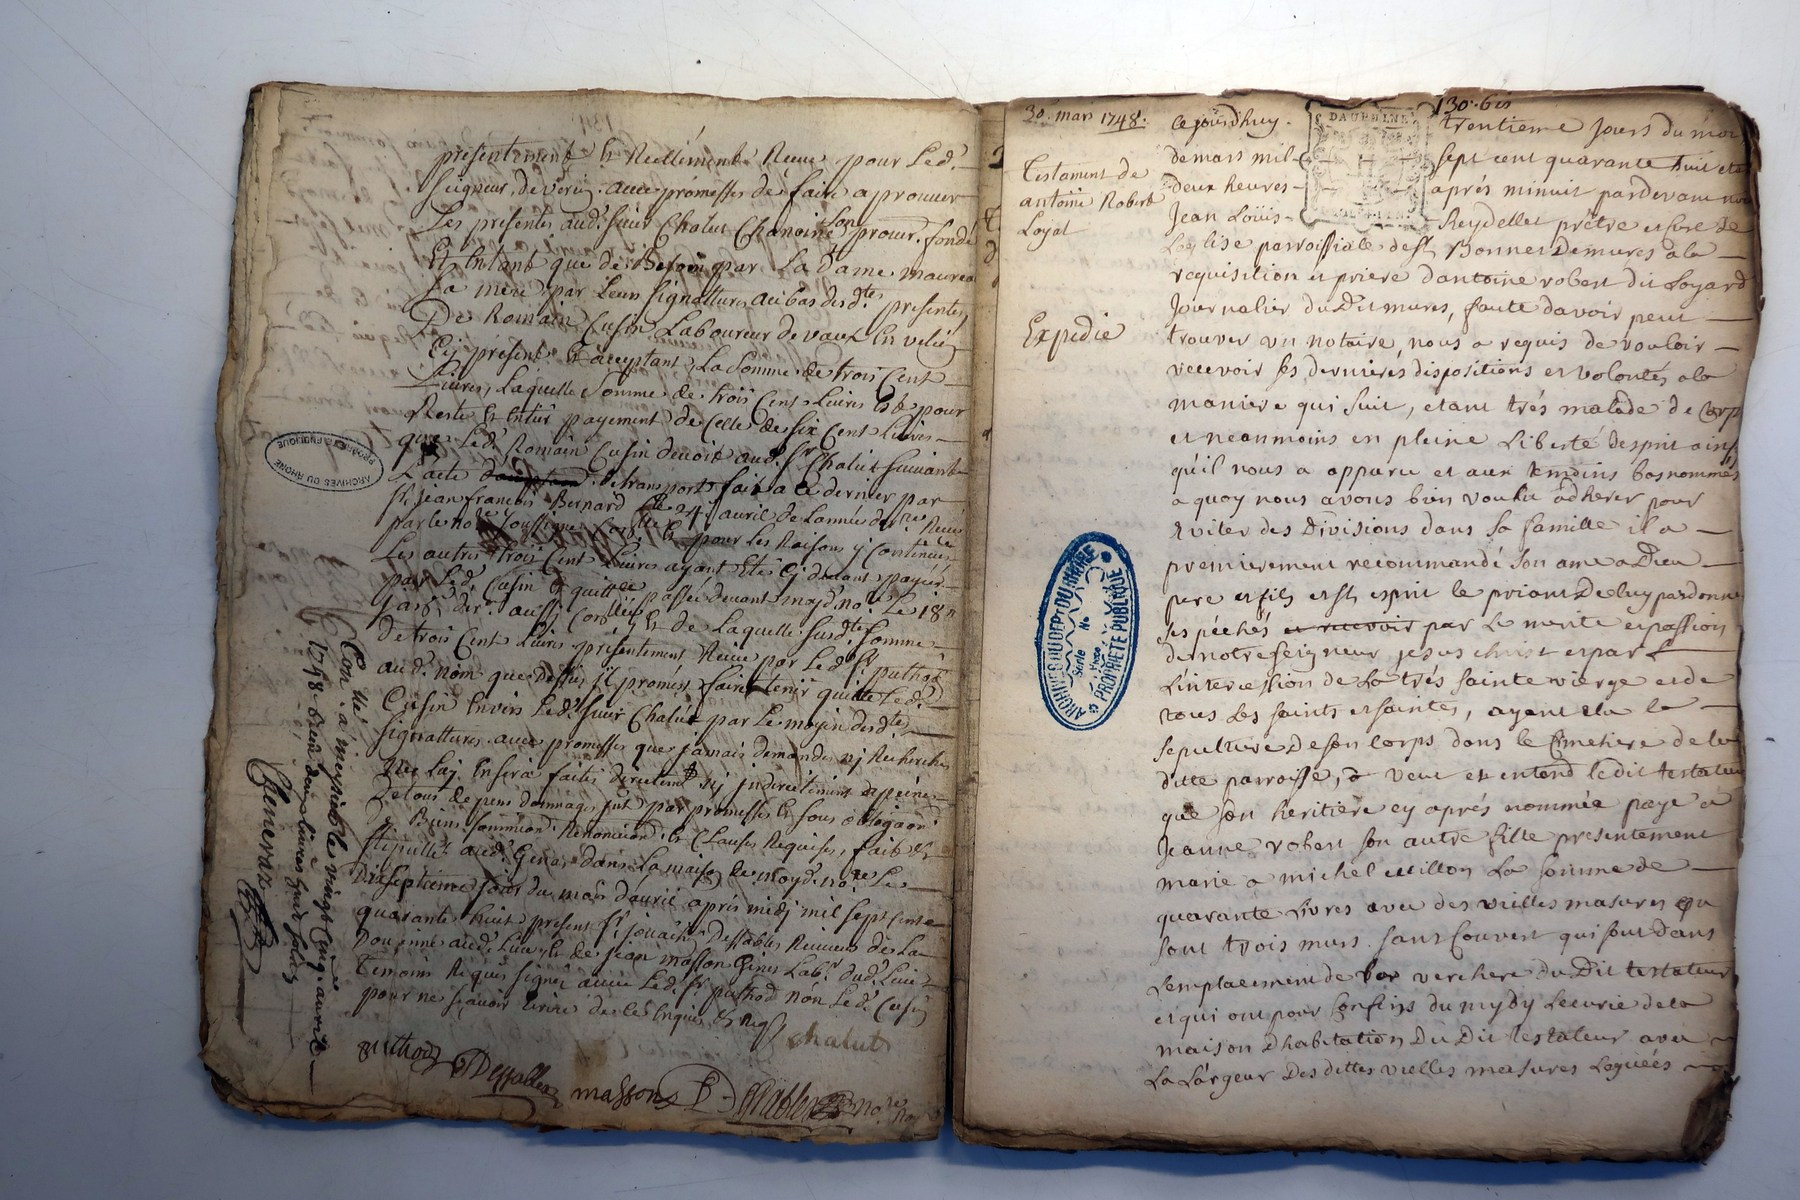 presentement & Reellement Reçue pour Led.
Seigneur de verin avec promesses de faire aprouver
Les presentes aud. sieur Chalut Chanoine son procur. fondé
Et Entant que de Besoin par La dame
sa mere par Leurs signatures au bas desd.tes presentes
De Romain Cusin Laboureur de vaux En velin
Cy present & acceptant, La Somme de trois Cent
Livres, Laquelle Somme de trois Cent Livres Est pour
Reste & Entier payement de Celle de six Cent Livres
que Led. Romain Cusin devoit aud. Sr Chalut suivant
L'acte de transport fait a Ce dernier par
Sr Jean francois Bernard Le 24 avril de L'année der.re Reçu
par le no.re soussigné & pour Les Raisons y Contenües
Les autres trois Cent Livres ayant Eté Cy devant payées
par Led. Cusin & quittée passée devant moyd. no.re Le 18
der. aussy & de Laquelle susd.te Somme
de trois Cent Livres présentement Reçue par Led. Sr puthod
aud. nom que dessus il promest faire tenir quitte Led.
Cusin Envers Led. sieur Chalut par Le moyen desd.tes
signattures avec promesses que jamais demandes nj Recherches
ne Luy En sera faites directem.t nj indirectement apeine
de tous depens dommages
& Biens Renonciaõn & Clauses Requises, fait &
aud. Genas dans La maison de moyd. no.re Le
Dixseptieme jour du mois d'avril apres midj mil sept Cent
quarante huit present Sr Destables Receveur de La
Doüanne aud. Lieu, & de jean masson Lab.r dud. Lieu
temoins Requis signés avec Led. Sr puthod non Led. Cusin
pour ne sçavoir Ecrire de Ce Enquis & Req.
chalut
puthod Destables massons Destables no.re
Con.llé a meyssieu le vingt Cinq avril
1748. Reçeu douze sols
Chenevaz
ARCHIVES DU RHONE
PROPRIETE PUBLIQUE
130. bis
30. mars 1748.
Testament de
antoine Robert
Loyat
Expedie
DAUPHINE
ARCHIVES DU DEPT DU RHONE
Série No
Pièce
PROPRIETE PUBLIQUE
ce jourdhuy trentieme Jours du moi
de mars mil sept cent quarante huit et a
deux heures aprés minuit pardevant nous
Jean Loüis Reydellet prétre et curé de
Leglise parroissiale de St Bonnet De mures a la
requisition et priere dantoine robert dit Loyard
Journalier du Dit mures, faute davoir peut
trouver un notaire, nous a requis de vouloir
recevoir ses dernieres dispositions et volontés a la
maniere qui suit, etant trés malade de Corp
et neanmoins en pleine Liberté desprit ainsy
quil nous a apparu et aux temoins bas nommés
a quoy nous avons bien voulu adherer pour
Eviter des Divisions dans sa famille il a
premierement recommandé son ame a Dieu
pere et fils et St esprit le priant De luy pardonner
ses péchés et recevoir par Le merite et passion
de notre seigneur jesus christ et par
Lintercession de La trés sainte vierge et de
tous Les saints et saintes, ayant elu la
sepulture De son Corps dans le Cimetiere de la
ditte parroisse, veut et entend le dit testateur
que son heritiere cy aprés nommée paye a
Jeanne robert son autre fille presentement
marie a michel million La somme de
quarante Livres avec des vieilles masures qui
sont trois murs sans Couvert qui sont Dans
Lemplacement de verchere du Dit testateur
et qui ont pour Confins du mydy Lecurie de la
maison Dhabitation Du Dit testateur avec
La Largeur Des dittes vielles masures